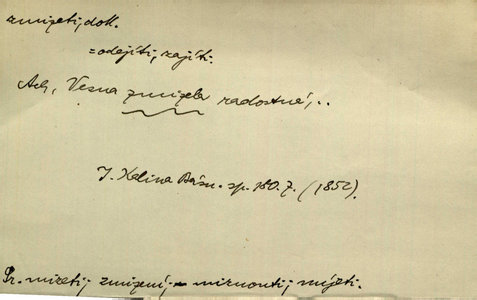 zmizeti, dok.
= odejíti, zajíti.
Ach, Vesna zmizela radostná,..
J. Kalina Básn. sp. 180.7. (1852).
Sr. mizeti; zmizení; mirnouti; míjeti.